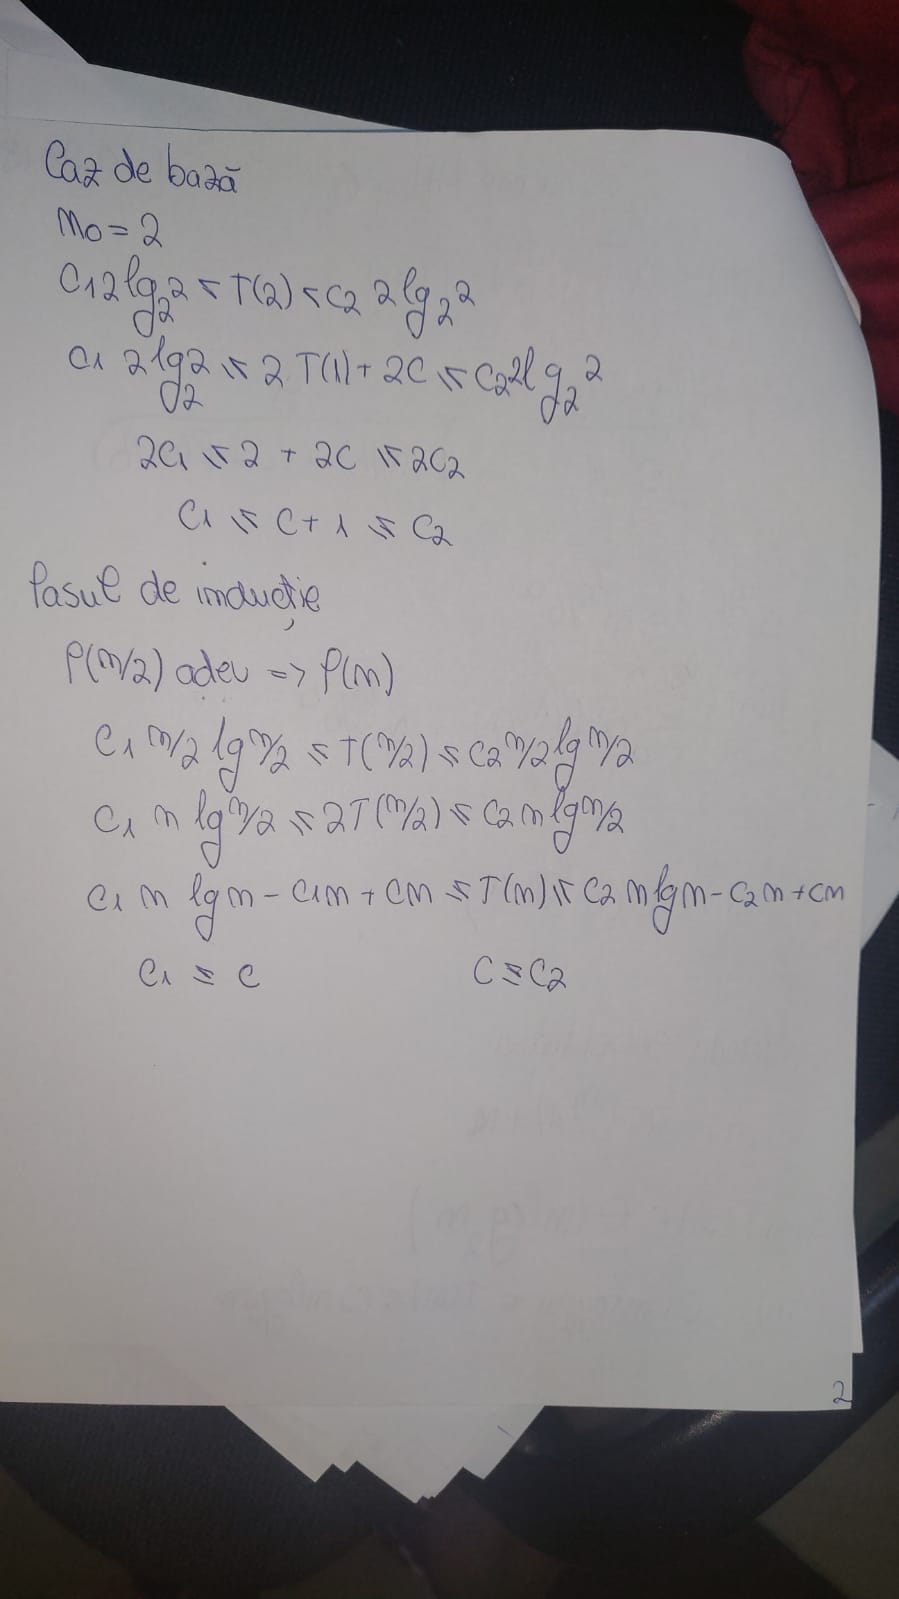 Caz de bază
n0 = 2
c1 2 lg₂2 ≤ T(2) ≤ c2 2 lg₂2
c1 2 lg₂2 ≤ 2 T(1) + 2c ≤ c2 2 lg₂2
2c1 ≤ 2 + 2c ≤ 2c2
c1 ≤ c + 1 ≤ c2
Pasul de inducție
P(n/2) adev => P(n)
c1 n/2 lg n/2 ≤ T(n/2) ≤ c2 n/2 lg n/2
c1 n lg n/2 ≤ 2T(n/2) ≤ c2 n lg n/2
c1 n lg n - c1n + cn ≤ T(n) ≤ c2 n lg n - c2n + cn
c1 ≤ c c ≤ c2
2